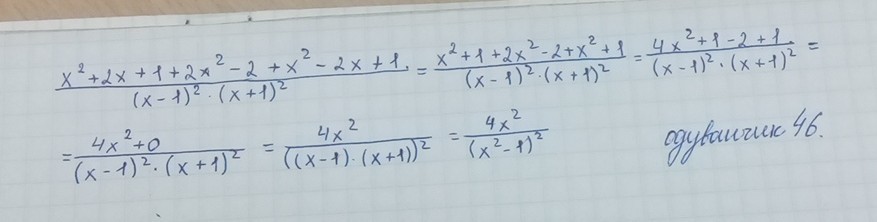 \frac{x^2+2x+1+2x^2-2+x^2-2x+1.}{(x-1)^2\cdot(x+1)^2} = \frac{x^2+1+2x^2-2+x^2+1}{(x-1)^2\cdot(x+1)^2} = \frac{4x^2+1-2+1.}{(x-1)^2\cdot(x+1)^2} =
= \frac{4x^2+0}{(x-1)^2\cdot(x+1)^2} = \frac{4x^2}{((x-1)\cdot(x+1))^2} = \frac{4x^2}{(x^2-1)^2} одуванчик 46.